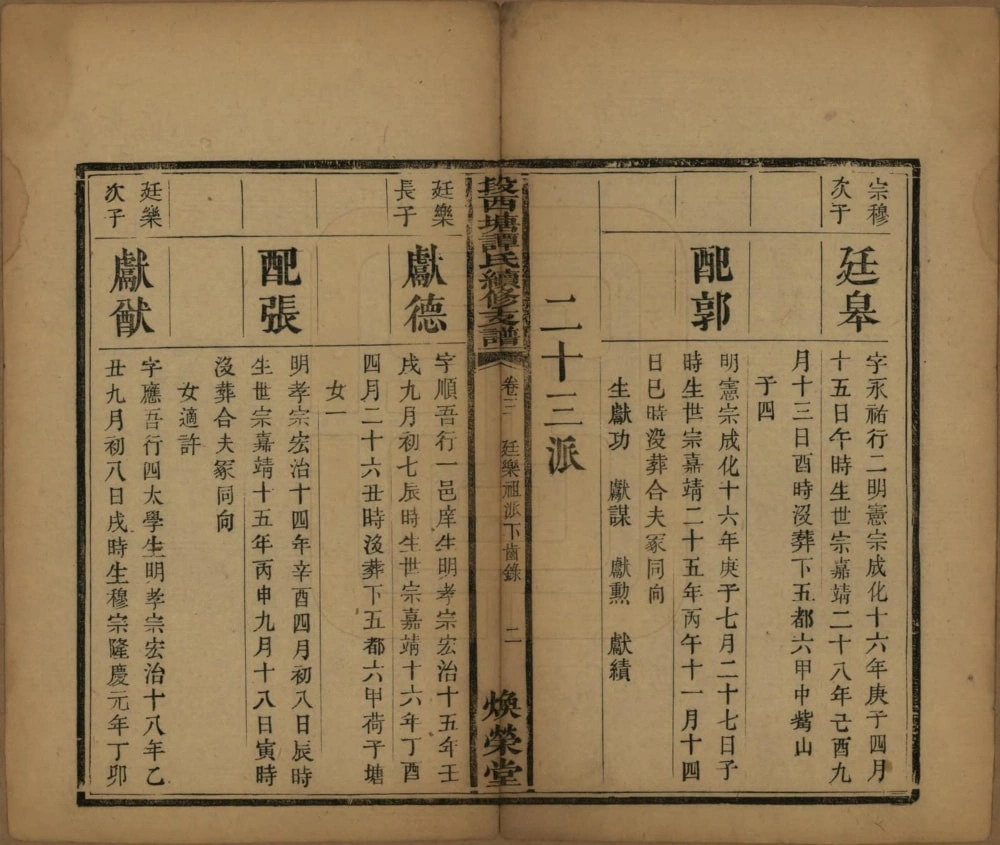 宗穆
次子
廷皋
字永祐行二明憲宗成化十六年庚子四月
十五日午時生世宗嘉靖二十八年己酉九
月十三日酉時没葬下五都六甲中觜山
子四
配郭
明憲宗成化十六年庚子七月二十七日子
時生世宗嘉靖二十五年丙午十一月十四
日巳時没葬合夫冢同向
生獻功 獻謀 獻勲 獻績
二十三派
段西塘譚氏續修支譜
卷三 廷樂祖派下齒錄 二
煥榮堂
廷樂
長子
獻德
字順吾行一邑庠生明孝宗宏治十五年壬
戌九月初七辰時生世宗嘉靖十六年丁酉
四月二十六丑時没葬下五都六甲荷子塘
女一
配張
明孝宗宏治十四年辛酉四月初八日辰時
生世宗嘉靖十五年丙申九月十八日寅時
没葬合夫冢同向
女適許
廷樂
次子
獻猷
字應吾行四太學生明孝宗宏治十八年乙
丑九月初八日戌時生穆宗隆慶元年丁卯